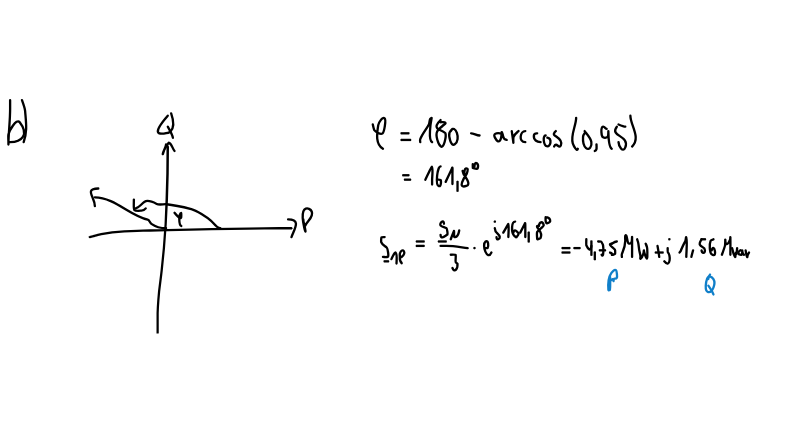 b)
Q
P
φ
φ = 180 - arccos(0,95)
= 161,8°
S_1P = S_N/3 · e^j161,8° = -4,75 MW + j 1,56 Mvar
P Q